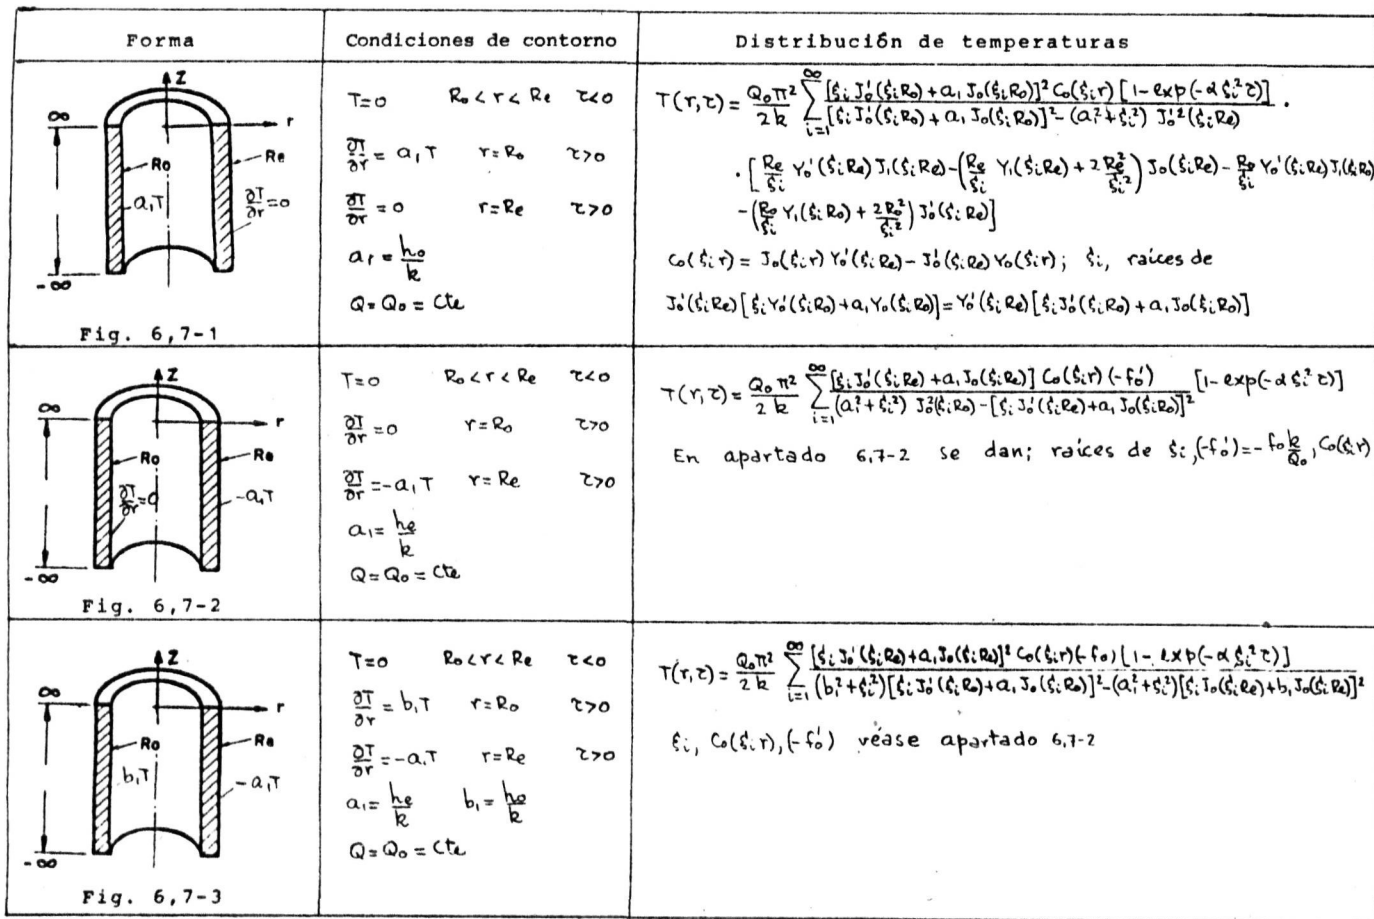 Forma
Condiciones de contorno
Distribución de temperaturas
Z
r
∞
-∞
Ro
Re
a₁T
∂T/∂r=0
Fig. 6,7-1
T=0 Ro<r<Re τ<0
∂T/∂r = a₁T r=Ro τ>0
∂T/∂r = 0 r=Re τ>0
a₁ = ho/k
Q=Qo=Cte
T(r,τ) = Qoπ²/2k ∑_{i=1}^{∞} [ξi Jo'(ξiRo)+a₁Jo(ξiRo)]² Co(ξir) [1-exp(-αξi²τ)] / [ξi Jo'(ξiRo)+a₁Jo(ξiRo)]²-(a₁²+ξi²) Jo'²(ξiRe) ·
· [Re/ξi Yo'(ξiRe) J₁(ξiRe)-(Re/ξi Y₁(ξiRe)+2Re²/ξi²) Jo(ξiRe)-Ro/ξi Yo'(ξiRe) J₁(ξiRo)
-(Ro/ξi Y₁(ξiRo)+2Ro²/ξi²) Jo'(ξiRe)]
Co(ξir) = Jo(ξir) Yo'(ξiRe)-Jo'(ξiRe) Yo(ξir); ξi, raíces de
Jo'(ξiRe)[ξiYo'(ξiRo)+a₁Yo(ξiRo)]=Yo'(ξiRe)[ξiJo'(ξiRo)+a₁Jo(ξiRo)]
Z
r
∞
-∞
Ro
Re
∂T/∂r=0
-a₁T
Fig. 6,7-2
T=0 Ro<r<Re τ<0
∂T/∂r=0 r=Ro τ>0
∂T/∂r=-a₁T r=Re τ>0
a₁= he/k
Q=Qo=Cte
T(r,τ) = Qoπ²/2k ∑_{i=1}^{∞} [ξi Jo'(ξiRe)+a₁Jo(ξiRe)] Co(ξir) (-fo') / (a₁²+ξi²) Jo²(ξiRo)-[ξi Jo'(ξiRe)+a₁Jo(ξiRo)]² [1-exp(-αξi²τ)]
En apartado 6,7-2 se dan; raíces de ξi,(-fo')=-fo k/Qo, Co(ξir)
Z
r
∞
-∞
Ro
Re
b₁T
-a₁T
Fig. 6,7-3
T=0 Ro<r<Re τ<0
∂T/∂r = b₁T r=Ro τ>0
∂T/∂r=-a₁T r=Re τ>0
a₁= he/k b₁= ho/k
Q=Qo=Cte
T(r,τ) = Qoπ²/2k ∑_{i=1}^{∞} [ξi Jo'(ξiRe)+a₁Jo(ξiRe)]² Co(ξir)(-fo) [1-exp(-αξi²τ)] / (b₁²+ξi²)[ξi Jo'(ξiRo)+a₁Jo(ξiRo)]²-(a₁²+ξi²)[ξi Jo(ξiRe)+b₁Jo(ξiRe)]²
ξi, Co(ξir),(-fo') véase apartado 6,7-2